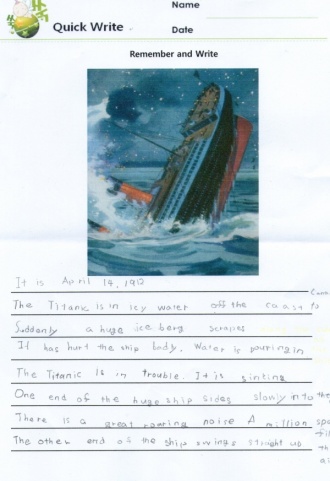 Name
Quick Write
Date
Remember and Write
It is April 14, 1912
The Titanic is in icy water off the coast to
Suddenly a huge ice berg scrapes
It has hurt the ship body. Water is pouring in
The Titanic is in trouble. It is sinting
One end of the huge ship sides slowly into the
There is a great roaring noise A million
The other end of the ship swings straight up